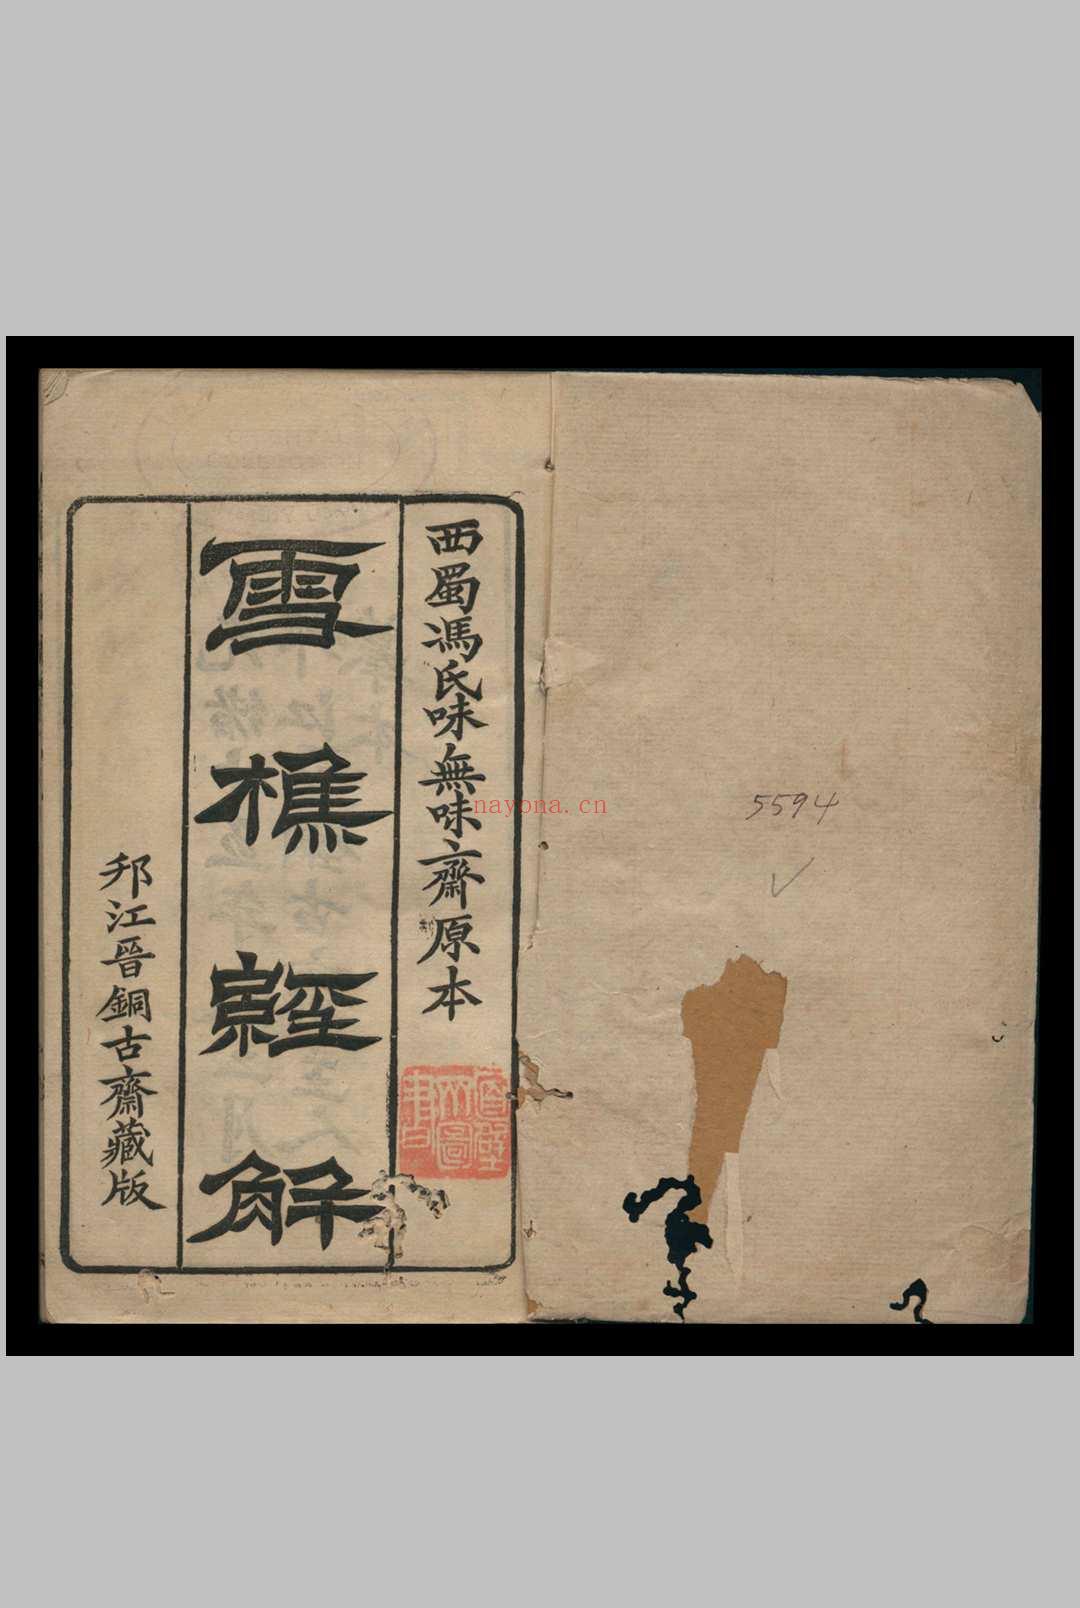 西蜀馮氏味無味齋原本
雪樵經解
邗江晉銅古齋藏版
5594
nayona.cn